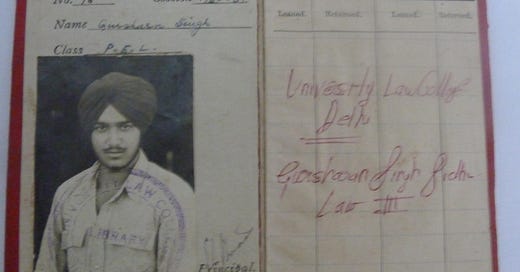 No. 18
Name Gursharn Singh
Class P.E.L.
LAW COLL
LIBRARY
Principal.
Loaned. Returned. Loaned. Returned.
University Law College
Delhi
Gursharan Singh Sidhu
Law III